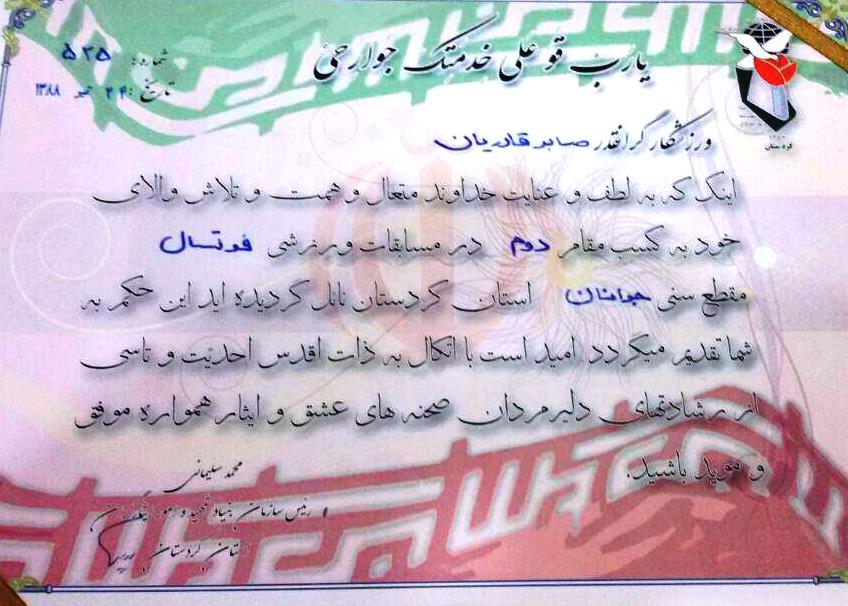 شماره: ۵۲۵
تاریخ: ۲۴ تیر ۱۳۸۸
یارب قو علی خدمتک جوارحی
کردستان
ورزشکار گرانقدر صابر قادریان
اینک که به لطف و عنایت خداوند متعال و همت و تلاش والای
خود به کسب مقام دوم در مسابقات ورزشی فوتسال
مقطع سنی جوانان استان کردستان نائل گردیده اید این حکم به
شما تقدیم میگردد امید است با اتکال به ذات اقدس احدیت و تاسی
از رشادتهای دلیرمردان صحنه های عشق و ایثار همواره موفق
و موید باشید.
محمد سلیمانی
رئیس سازمان بنیاد شهید و امور ایثارگران
استان کردستان